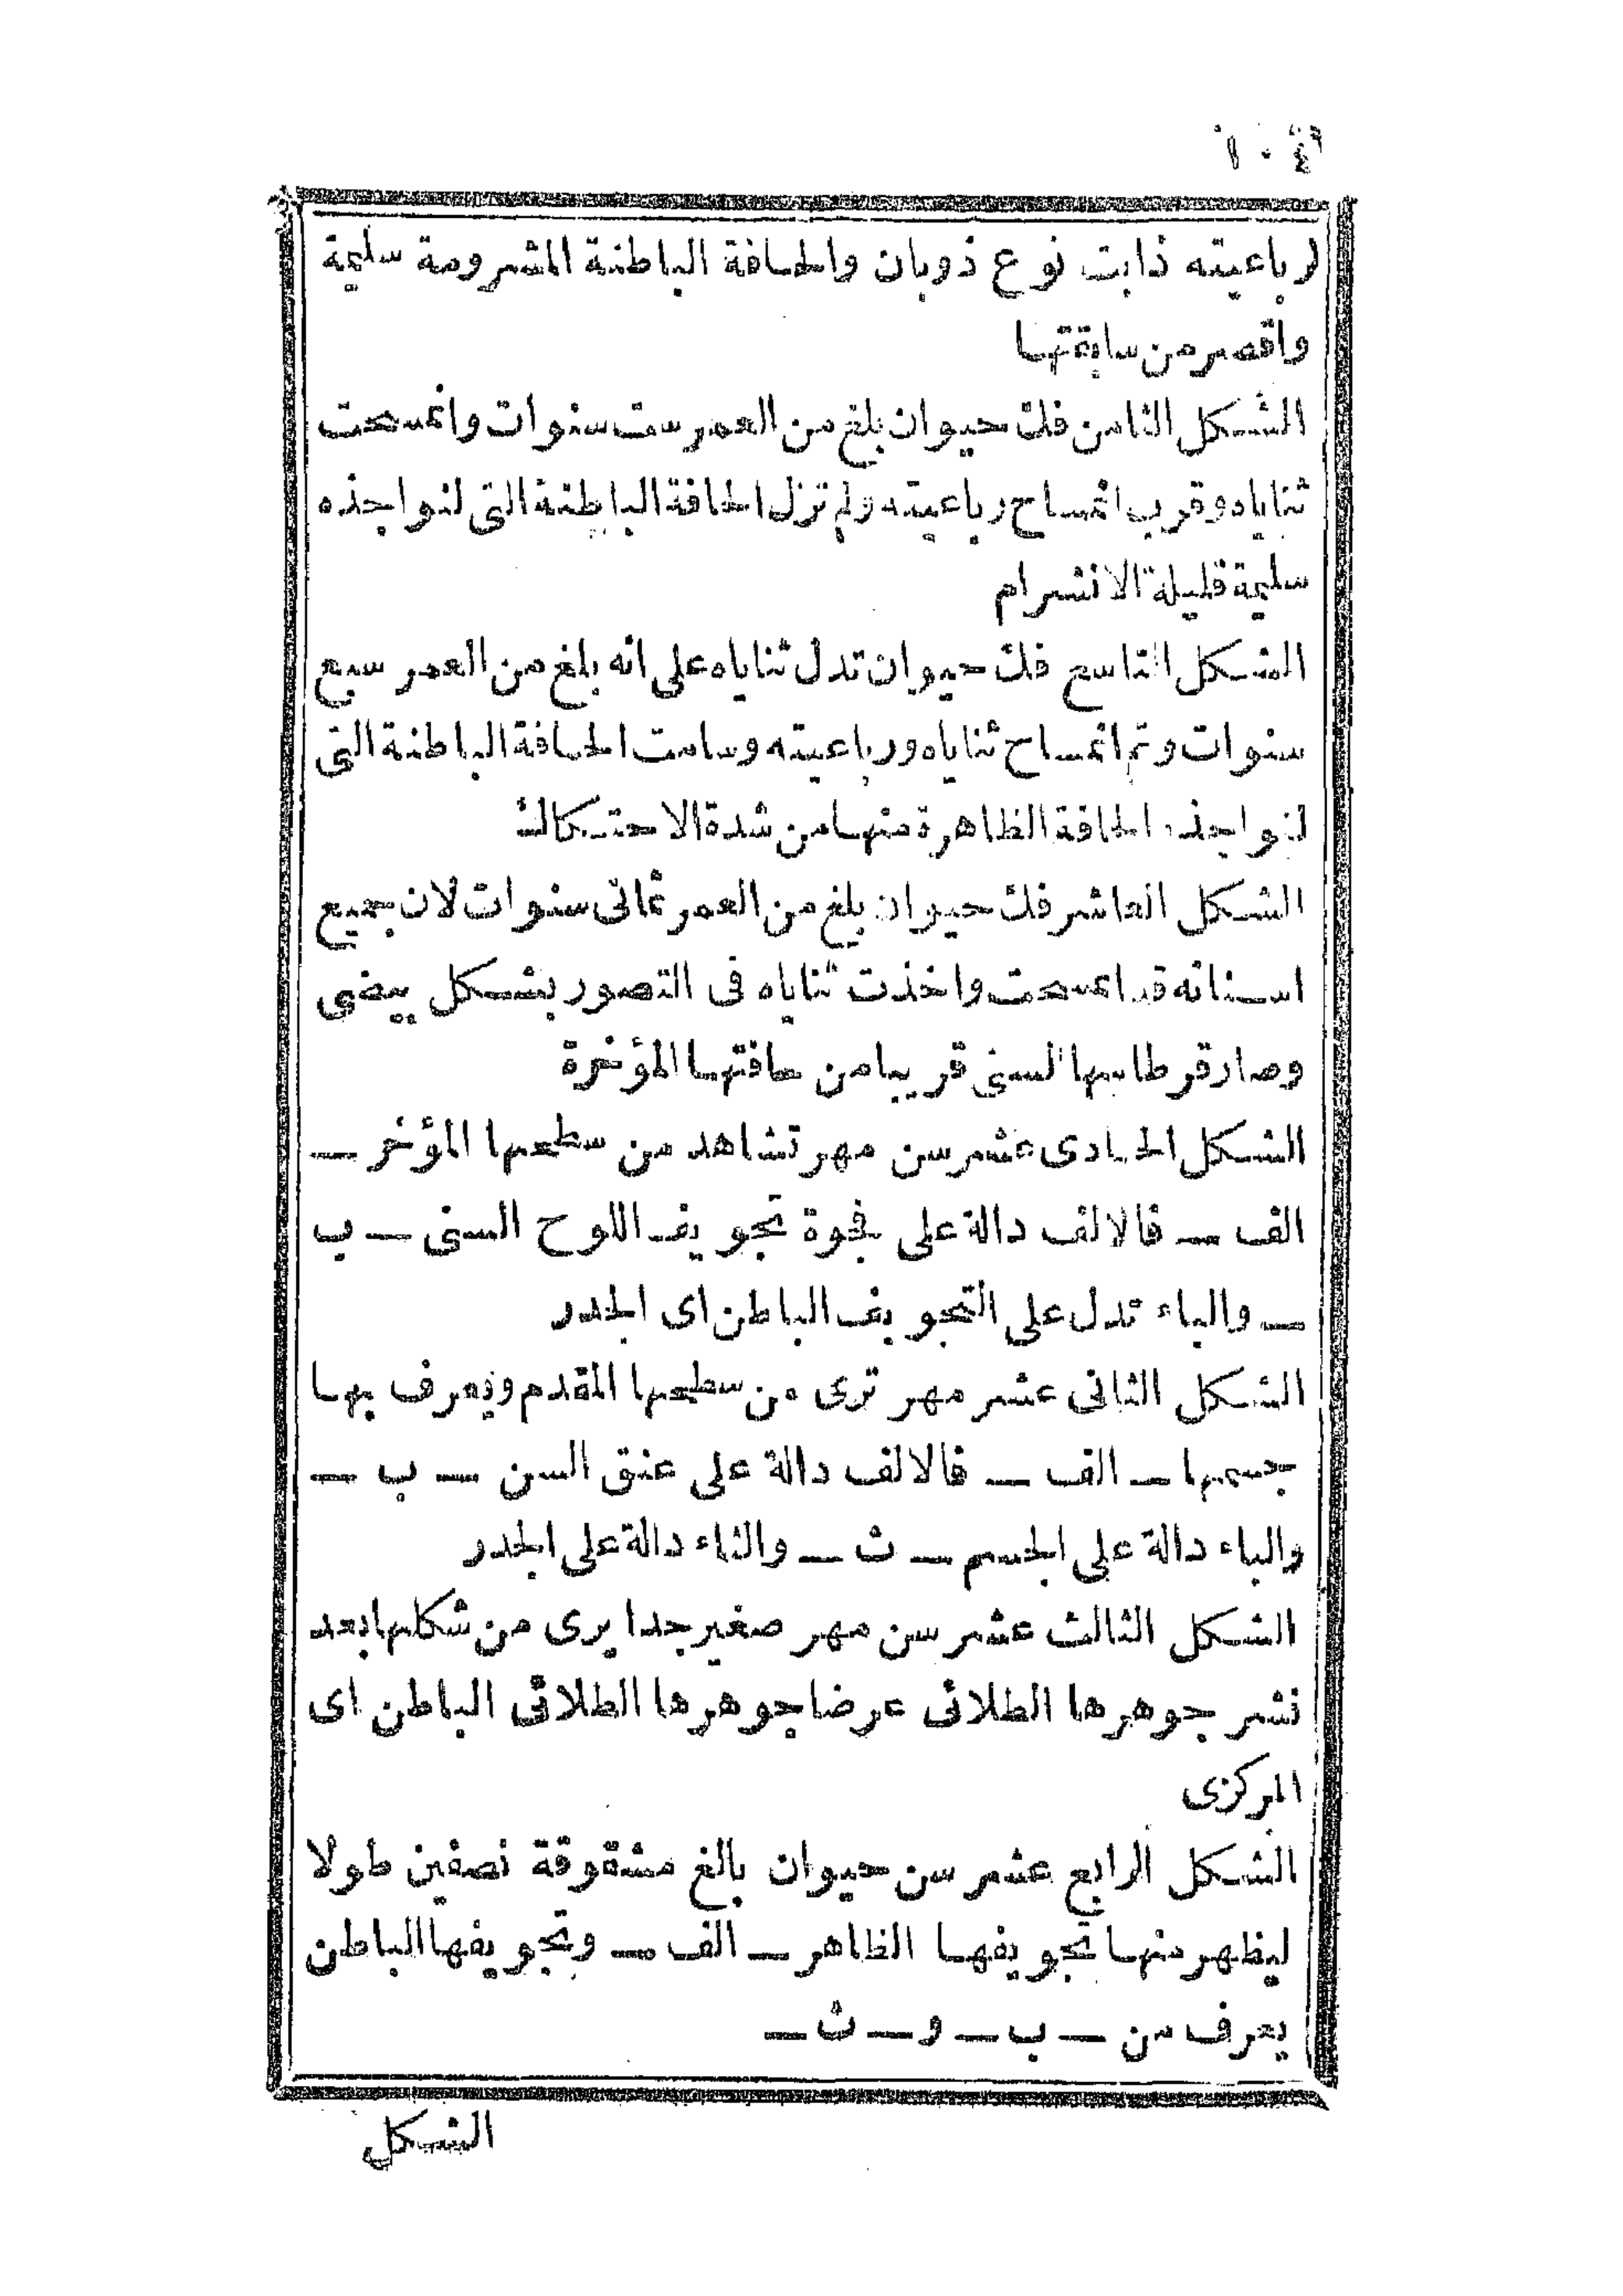 ١٠٤
لرباعيته ذابت نوع ذوبان والحافة الباطنة المشرومة سليمة
واقصر من سابقتها
الشكل الثامن فك حيوان بلغ من العمر ست سنوات وانمسحت
ثناياه وقرب انمساح رباعيته ولم تزل الحافة الباطنة التى لنواجذه
سليمة قليلة الانشرام
الشكل التاسع فك حيوان تدل ثناياه على انه بلغ من العمر سبع
سنوات وتم انمساح ثناياه ورباعيته وسامت الحافة الباطنة التى
لنواجذه الحافة الظاهرة منها من شدة الاحتكاك
الشكل العاشر فك حيوان بلغ من العمر ثمانى سنوات لان جميع
اسنانه قد انمسحت واخذت ثناياه فى التصور بشكل بيضى
وصار قرطاسها السنى قريبا من حافتها المؤخرة
الشكل الحادى عشر سن مهر تشاهد من سطحها المؤخر ـ
الف ـ فالالف دالة على فجوة تجويف اللوح السنى ـ ب
ـ والباء تدل على التجويف الباطن اى الجدر
الشكل الثانى عشر مهر ترى من سطحها المقدم ويعرف بها
جسمها ـ الف ـ فالالف دالة على عنق السن ـ ب ـ
والباء دالة على الجسم ـ ث ـ والثاء دالة على الجدر
الشكل الثالث عشر سن مهر صغير جدا يرى من شكلها بعد
نشر جوهرها الطلائى عرضا جوهرها الطلائى الباطن اى
المركزى
الشكل الرابع عشر سن حيوان بالغ مشقوقة نصفين طولا
ليظهر منها تجويفها الظاهر ـ الف ـ وتجويفها الباطن
يعرف من ـ ب ـ و ـ ث ـ
الشكل